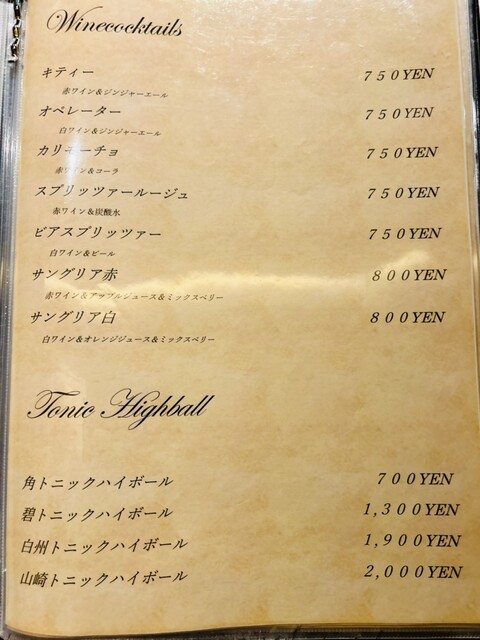 Winecocktails
キティー 750YEN
赤ワイン＆ジンジャーエール
オペレーター 750YEN
白ワイン＆ジンジャーエール
カリモーチョ 750YEN
赤ワイン＆コーラ
スプリッツァールージュ 750YEN
赤ワイン＆炭酸水
ビアスプリッツァー 750YEN
白ワイン＆ビール
サングリア赤 800YEN
赤ワイン＆アップルジュース＆ミックスベリー
サングリア白 800YEN
白ワイン＆オレンジジュース＆ミックスベリー
Tonic Highball
角トニックハイボール 700YEN
碧トニックハイボール 1,300YEN
白州トニックハイボール 1,900YEN
山崎トニックハイボール 2,000YEN